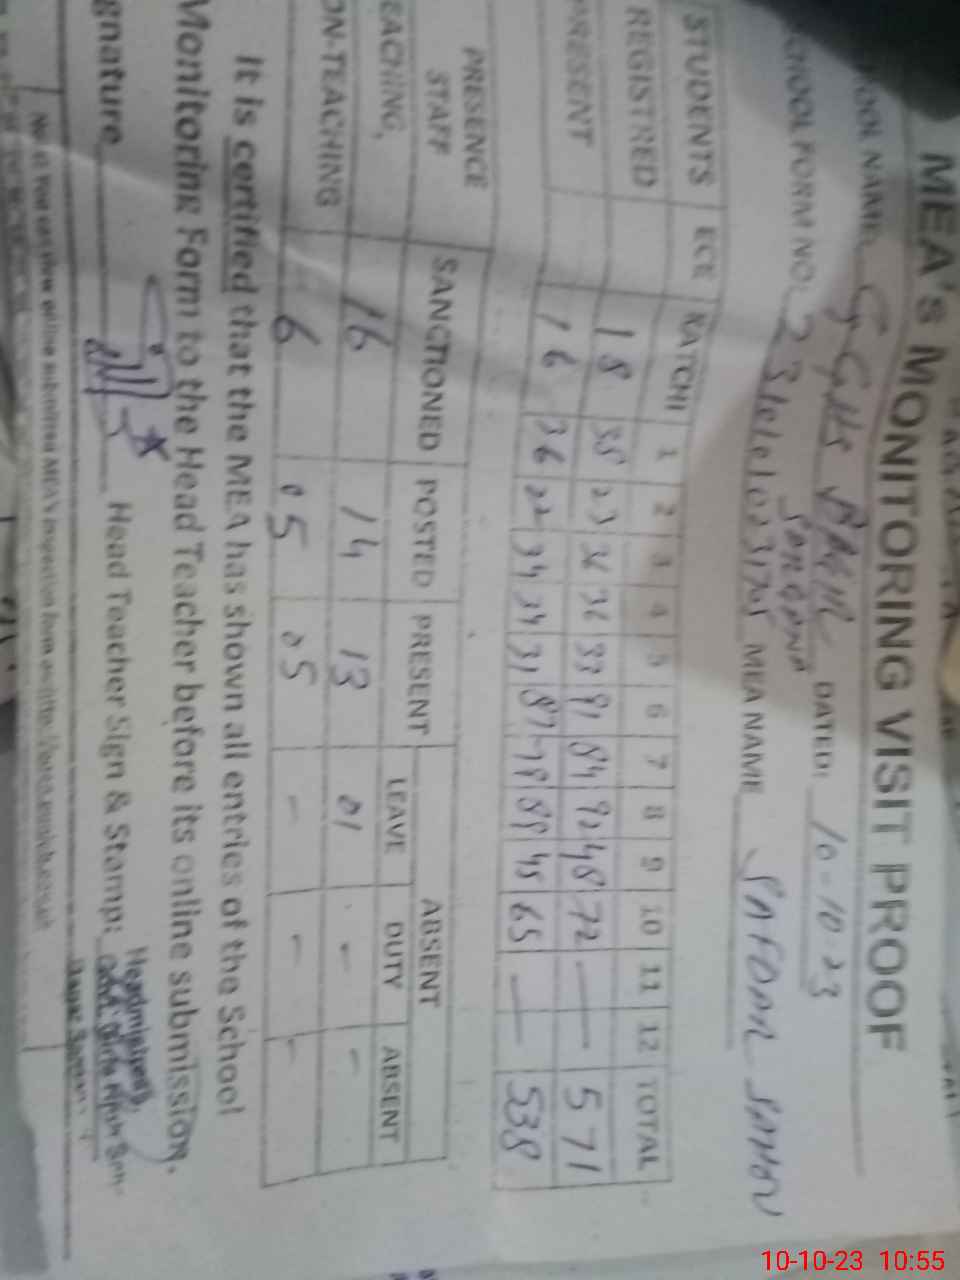 MEA's MONITORING VISIT PROOF
OOL NAME: GGHS DATED: 10-10-23
CHOOL FORM NO: MEA NAME SAFDAR
STUDENTS ECE KATCHI 1 2 3 4 5 6 7 8 9 10 11 12 TOTAL
REGISTRED 18 38 23 36 36 33 91 84 92 48 72 — — 571
PRESENT 16 36 22 34 34 31 87 78 88 45 65 — — 538
PRESENCE STAFF SANCTIONED POSTED PRESENT ABSENT
LEAVE DUTY ABSENT
EACHING, 16 14 13 01 - -
ON-TEACHING 6 05 05 - - -
It is certified that the MEA has shown all entries of the School
Monitoring Form to the Head Teacher before its online submission.
gnature Head Teacher Sign & Stamp:
Headmistress,
10-10-23 10:55